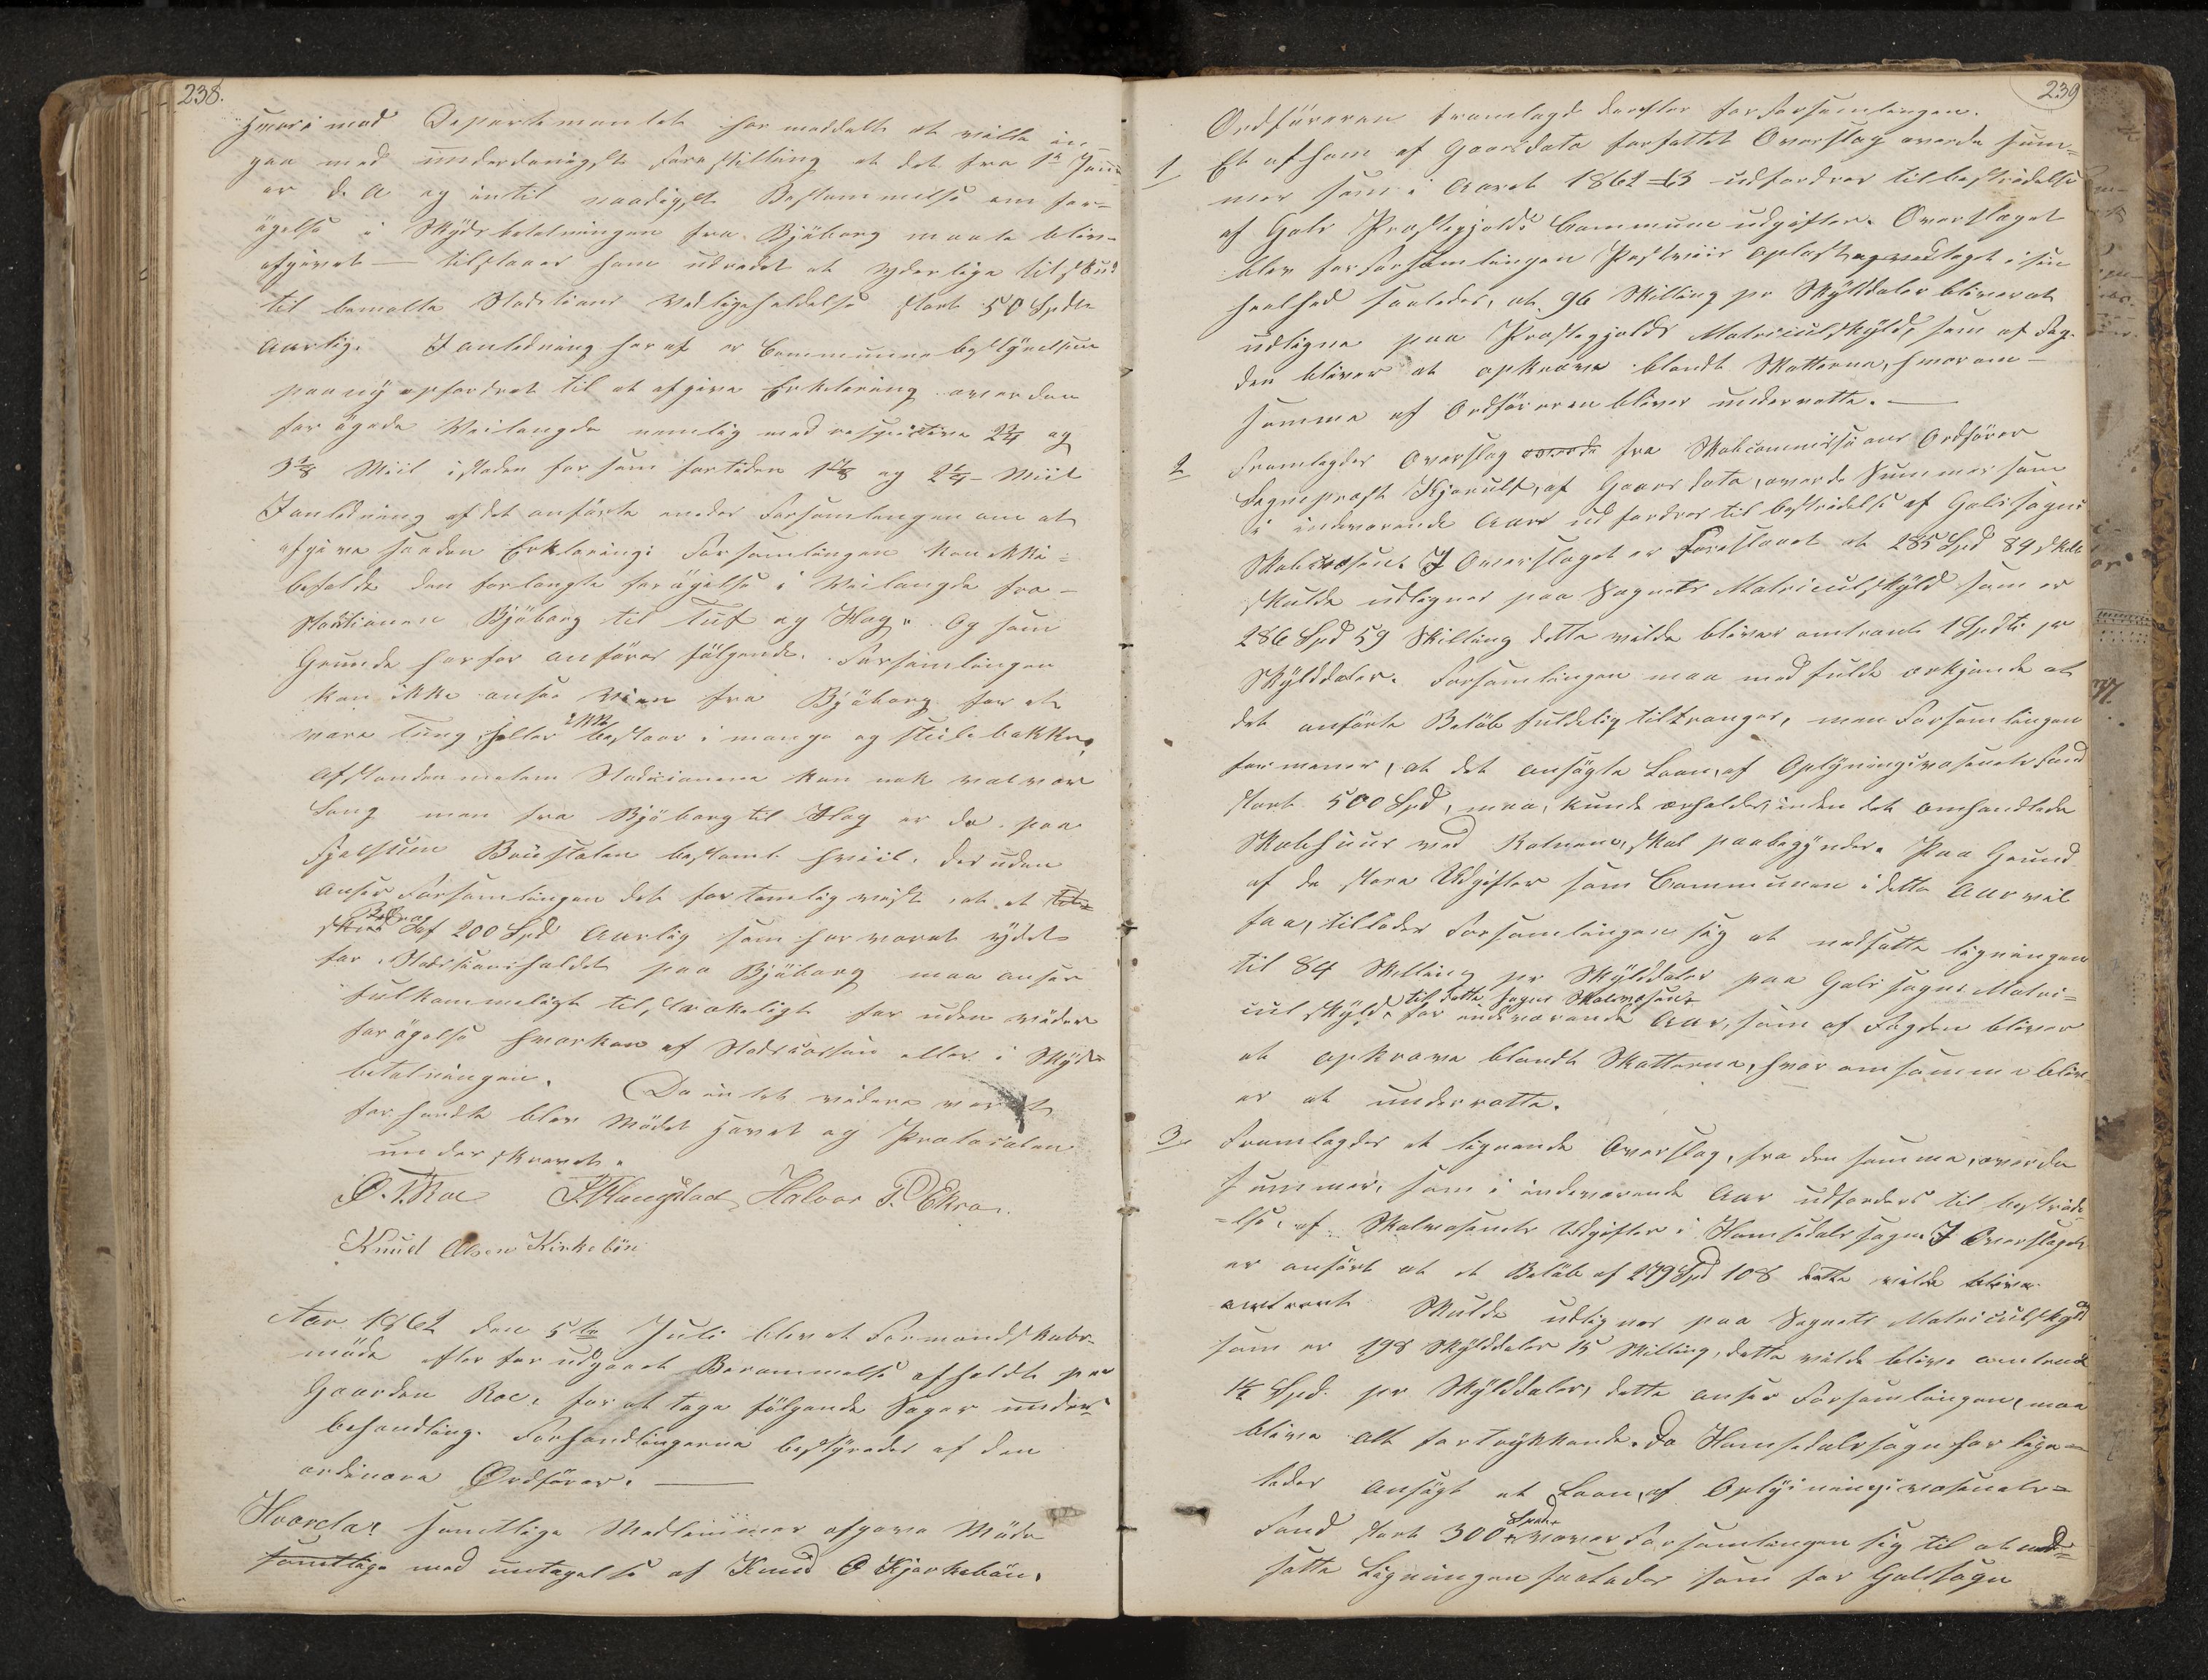 238.
hvori med Departementet har meddelt at ville in
gaa med underdanigste Forestilling at det fra 1ste Janu
ar d. A og intil naadigste Bestemmelse om for=
øgelse i Skydsbetalningen fra Bjøberg maate bliv-
afgivet — tilstaaes ham udredet et yderlige tilskud
til bemelte Stadsions Vedligeholdelse stort 50 Spdlr
Aarlig. I anledning heraf er Communebestyrelsen
paa ny opfordret til at afgive Erklæring over den
forøgede Veilengde nemlig med respective 2 3/4 og
3 1/8 Miil isteden for som fortiden 1 7/8 og 2 1/4 Miil
I anledning af det anførte enedes Forsamlingen om at
afgive saadan Erklæring: Forsamlingen kan ikke
befatde den forlangte forøgelse i Veilengde fra
Stastionen Bjøberg til Tuf og Hæg. Og som
Grunde herfor anføres følgende. Forsamlingen
kan ikke ansee Veien fra Bjøberg for at
være tung, heller ikke bestaar i mange og steile bakker,
Afstanden mellem Stadsionerne kan nok vel være
Lang men fra Bjøberg til Hæg er da paa
Fjelstuen Breistølen bestemt hviil. desuden
anser Forsamlingen det for temlig vist, at et til=
skud Bidrag af 200 Spd Aarlig som har været ydet
for Stadsionsholdet paa Bjøberg maa ansees
fulkommeligt tilstrækeligt for uden videre
forøgelse hvorken af Stadscassen eller i Skyds
betalningen. Da intet videre var at
forhandle blev Mødet hævet og Protocolen
underskrevet.
O. T. Roe Halvor P. Ekro.
Knud Olsen Kirkebøn
Aar 1862 den 5te Juli blev et Formandskabs-
møde efter forudgaaet Berammelse afholdt paa
Gaarden Roe, for at tage følgende Sager under
behandling. Forhandlingerne bestyredes af den
ordinære Ordfører. —
Hvorda samtlige Medlemmer afgave Møde
samtlige med untagelse af Knud O Kjørkebøn.
239
Ordføreren fremlagde derefter for Forsamlingen.
1 Et af ham af Gaarsdato forfattet Overslag over de Sum=
mer som i Aaret 1862-63 udfordres til bestridelse
af Gols Prestegjelds Communeudgifter. Overslaget
blev for Forsamlingen Postviis oplæst og vedtaget i sin
heelhed saaledes, at 96 Skilling pr Skylddaler bliver at
udligne paa Prestegjelds Matriculskyld, som af Fog-
den bliver at opkræve blandt Skatterne, hvorom
samme af Ordføreren bliver underrette. —
2 Fremlagdes Overslag overde fra Skolcommisions Ordfører
Sogneprest Kjerulf, af Gaars dato, over de Summer som
i indeværende Aar udfordres til bestridelse af Golssogns
Skolevæsen. I Overslaget er Foreslaaet at 285 Spd 84 skill
skulde udlignes paa Sognets Matriculskyld som er
286 Spd 59 Skilling dette vilde bliver omtrent 1 Spdlr pr
Skylddaler. Forsamlingen maa med fulde erkjende at
det anførte Beløb fuldelig tiltrænges, men Forsamlingen
formener, at det ansøgte Laan, af Oplysningsvæsenets Fond
stort 500 Spd, maa, kunde erholdes, inden det omhandlede
Skolehuus ved Rotnem, skal paabegyndes. Paa Grund
af de store Udgifter som Communen i dette Aar vil
faa, tillader Forsamlingen sig at nedsætte ligningen
til 84 Skilling pr Skylddaler paa Gols sogns Matri=
culskyld, til dette sogns Skolevæsen for indeværende Aar, som af Fogden bliver
at opkræve blandt Skatterne, hvor om samme bliv
er at underrette.
3. Fremlagdes et lignende Overslag, fra den samme, over de
Summer, som i indeværende Aar udfordres til bestride
-lse, af Skolvæsenets Udgifter i Hemsedals sogn. I Overslaget
er anført at et Beløb af 279 Spd 108 dette vilde blive
omtrent Skulde udlignes paa Sognets Matriculskyld
som er 198 Skylddaler 15 Skilling, dette vilde blive omtrent
1 1/2 Spd. pr Skylddaler, dette anser Forsamlingen, maa
blive alt fortrykkende. Da Hemsedalssogn har lige=
ledes ansøgt et Laan, af Oplysningsvæsenets=
Fond stort 300 Spd. vover Forsamlingen sig til at ned=
sætte Ligningen saaledes som for Golssogn